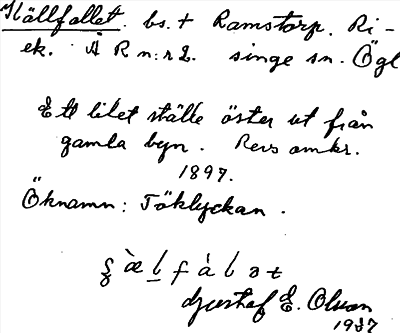 Källfallet. bs. + Ramstorp. Ri-
ek. Å R n:r 2. singe sn. Ögl
Ett litet ställe öster ut från
gamla byn. Revs omkr.
1897.
Öknamn: Töklyckan.
Gustaf E. Olsson
1937